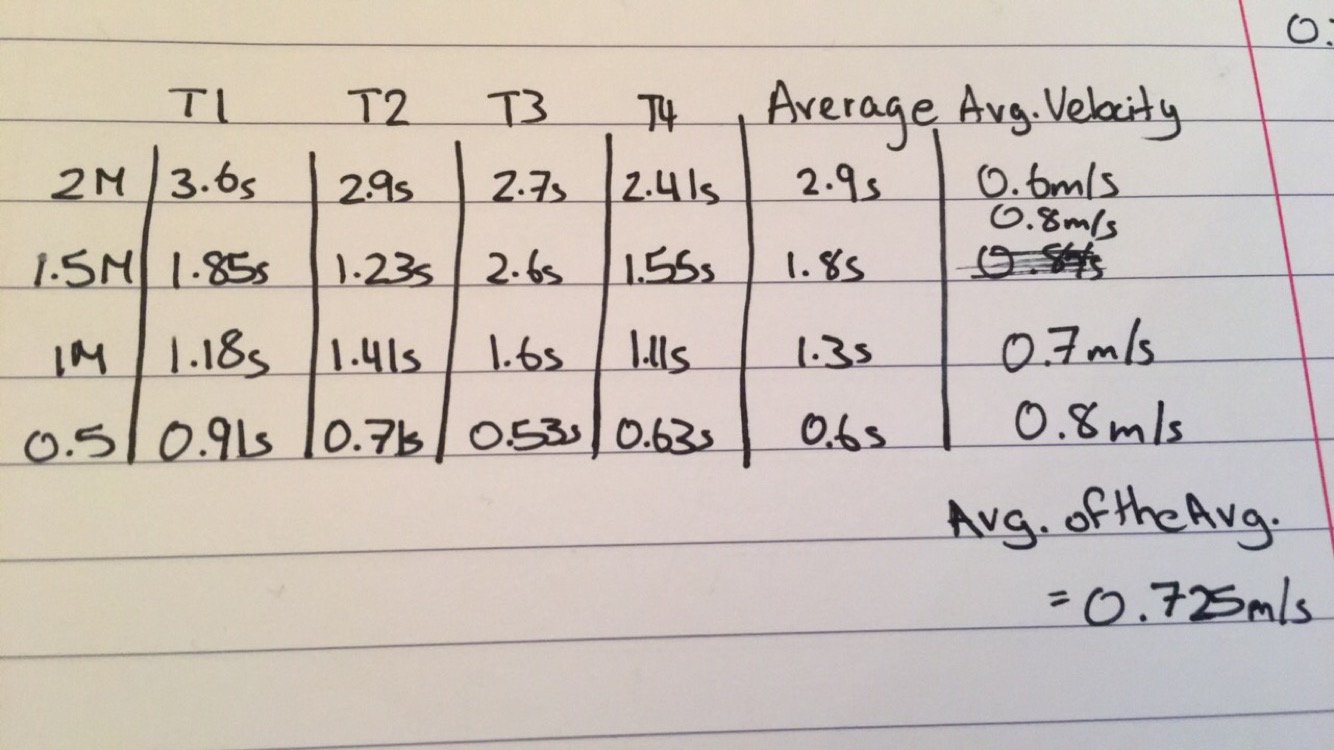 0.
T1 T2 T3 T4 Average Avg. Velocity
2M 3.6s 2.9s 2.7s 2.41s 2.9s 0.6m/s
0.8m/s
1.5M 1.85s 1.23s 2.6s 1.55s 1.8s
1M 1.18s 1.41s 1.6s 1.11s 1.3s 0.7m/s
0.5 0.91s 0.71s 0.53s 0.63s 0.6s 0.8m/s
Avg. of the Avg.
= 0.725m/s